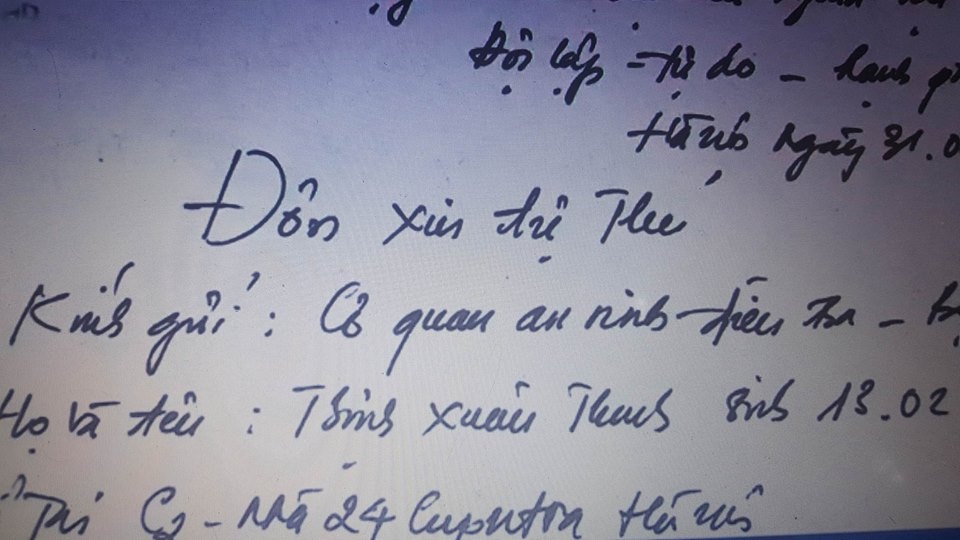 Độc lập - tự do - hạnh
Hà nội ngày 31.0
Đơn xin tự Thú
Kính gửi: Cơ quan an ninh điều tra -
Họ và tên: Trịnh Xuân Thanh sinh 13.02
Tại C2 - Nhà 24 Hà nội